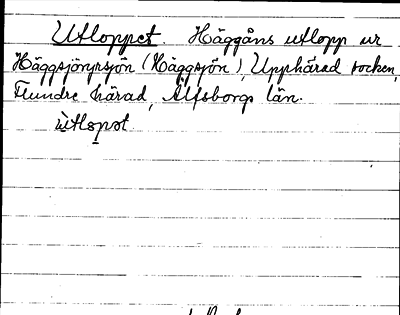 Utloppet. Häggåns utlopp ur
(Häggsjön), Upphärad socken,
Flundre härad, Älfsborgs län.
ùtlopət